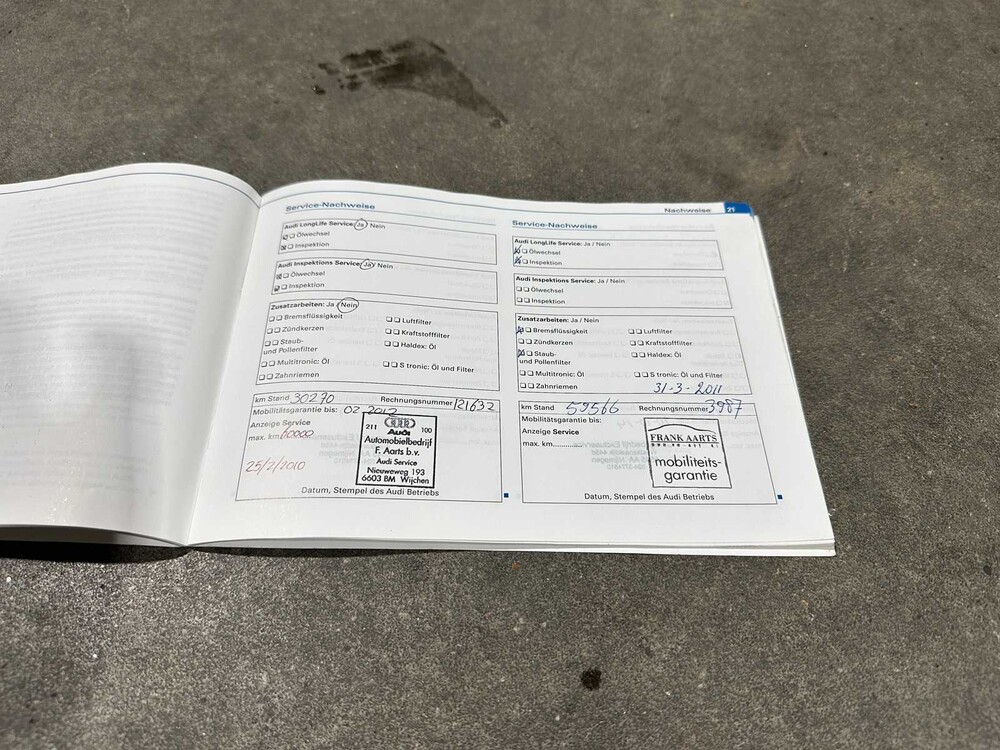 Nachweise 21
Service-Nachweise
Audi LongLife Service: Ja / Nein
Ölwechsel
Inspektion
Audi Inspektions Service: Ja / Nein
Ölwechsel
Inspektion
Zusatzarbeiten: Ja / Nein
Bremsflüssigkeit
Luftfilter
Zündkerzen
Kraftstofffilter
Staub-
und Pollenfilter
Haldex: Öl
Multitronic: Öl
S tronic: Öl und Filter
Zahnriemen
km Stand 30270 Rechnungsnummer 121632
Mobilitätsgarantie bis: 02-2012
Anzeige Service
max. km 60000
25/2/2010
211 100
Audi
Automobielbedrijf
F. Aarts b.v.
Audi Service
Nieuweweg 193
6603 BM Wijchen
Datum, Stempel des Audi Betriebs
Service-Nachweise
Audi LongLife Service: Ja / Nein
Ölwechsel
Inspektion
Audi Inspektions Service: Ja / Nein
Ölwechsel
Inspektion
Zusatzarbeiten: Ja / Nein
Bremsflüssigkeit
Luftfilter
Zündkerzen
Kraftstofffilter
Staub-
und Pollenfilter
Haldex: Öl
Multitronic: Öl
S tronic: Öl und Filter
Zahnriemen
31-3-2011
km Stand 59566 Rechnungsnummer 3987
Mobilitätsgarantie bis:
Anzeige Service
max. km..........
FRANK AARTS
mobiliteits-
garantie
Datum, Stempel des Audi Betriebs